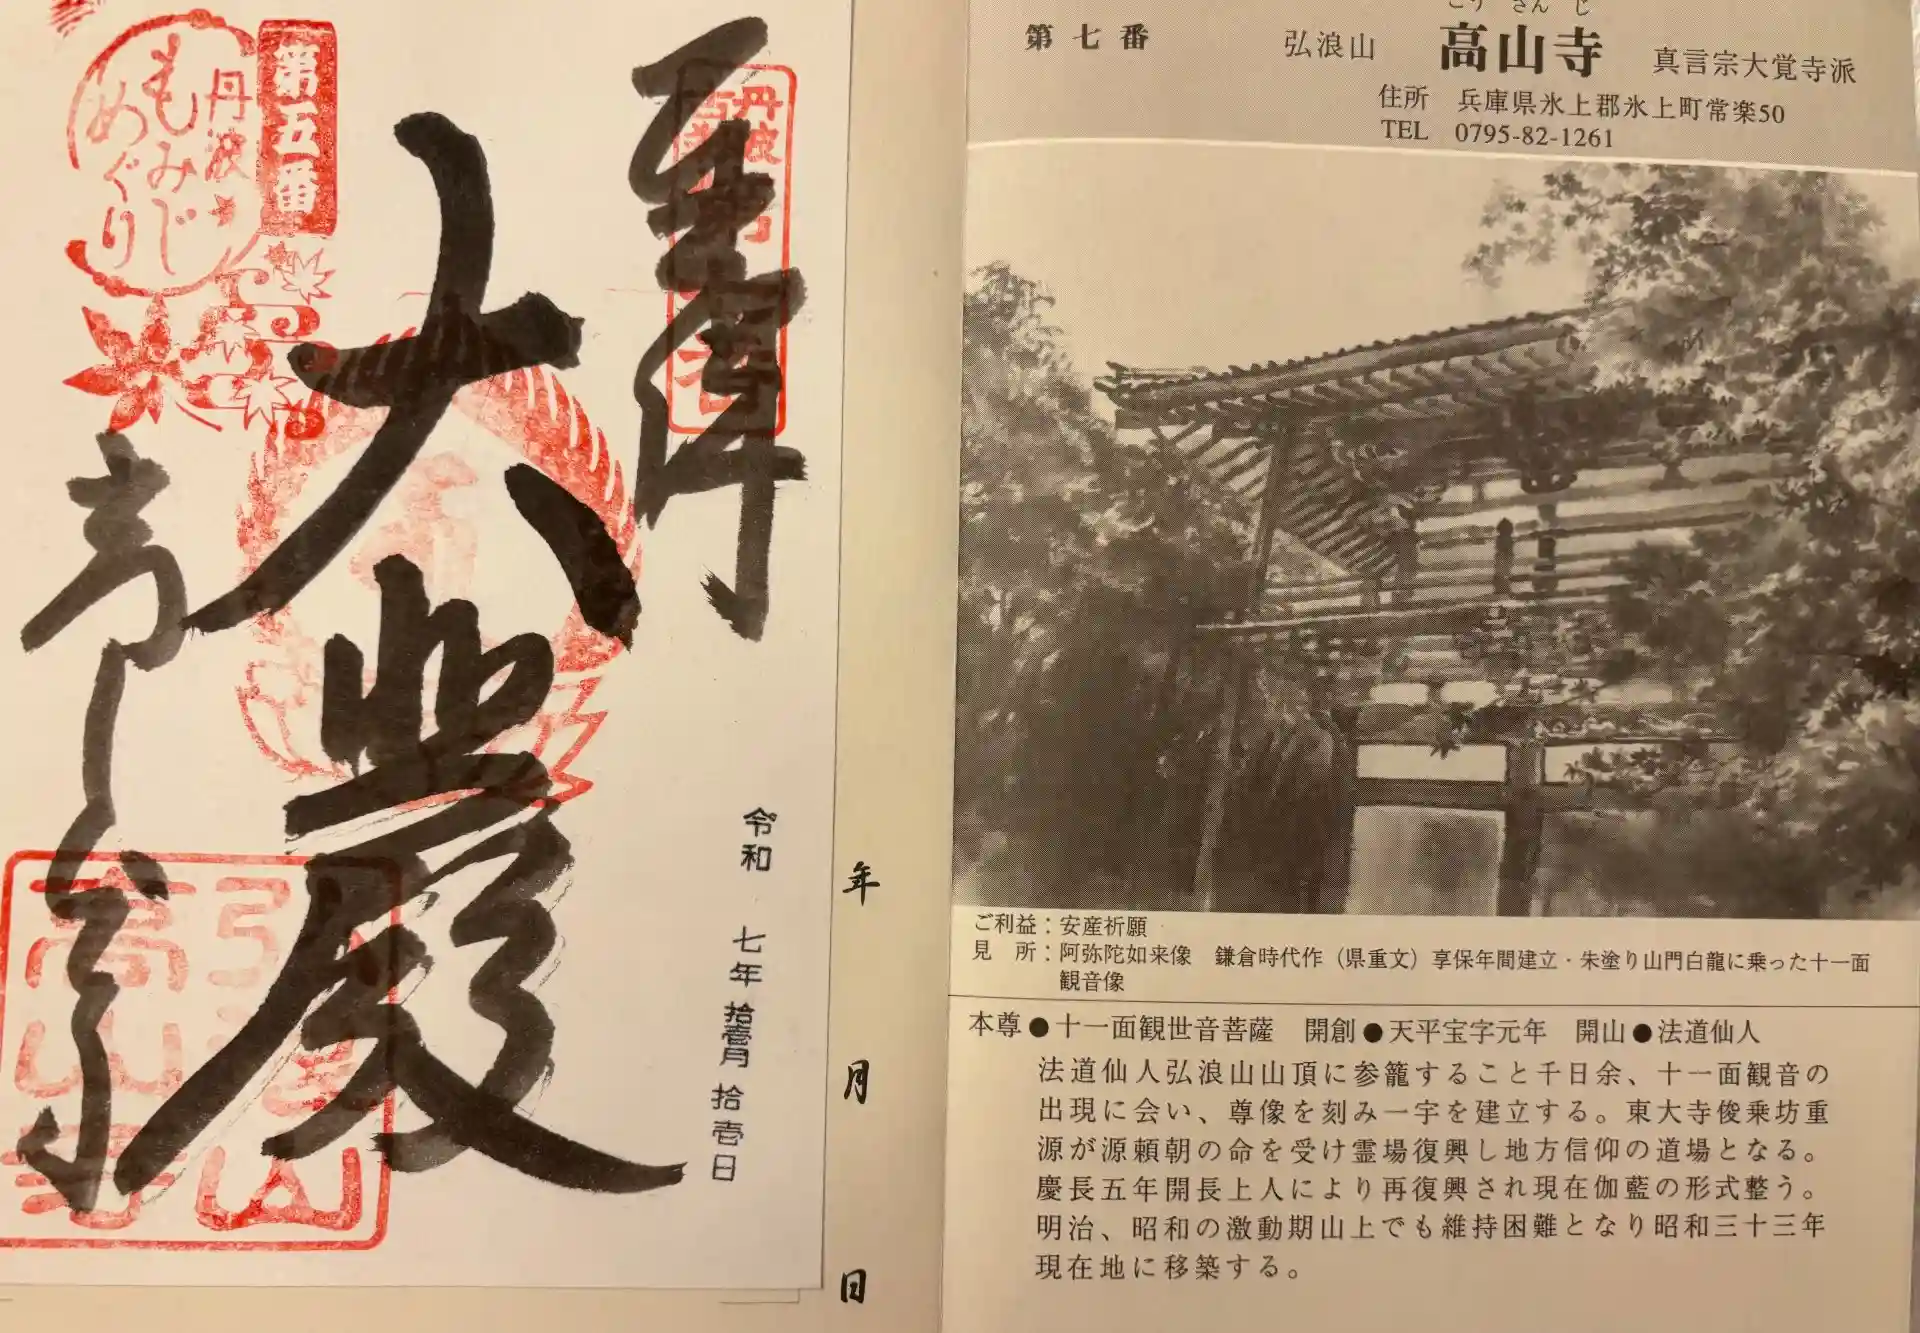 第五番
丹波
もみじ
めぐり
奉拝
大悲殿
高山寺
令和 七年 拾壹月 拾壱日
弘浪山
高山寺
年 月 日
こうさんじ
第七番 弘浪山 高山寺 真言宗大覚寺派
住所 兵庫県氷上郡氷上町常楽50
TEL 0795-82-1261
ご利益：安産祈願
見 所：阿弥陀如来像 鎌倉時代作（県重文）享保年間建立・朱塗り山門白龍に乗った十一面
観音像
本尊●十一面観世音菩薩 開創●天平宝字元年 開山●法道仙人
法道仙人弘浪山山頂に参籠すること千日余、十一面観音の
出現に会い、尊像を刻み一宇を建立する。東大寺俊乗坊重
源が源頼朝の命を受け霊場復興し地方信仰の道場となる。
慶長五年開長上人により再復興され現在伽藍の形式整う。
明治、昭和の激動期山上でも維持困難となり昭和三十三年
現在地に移築する。